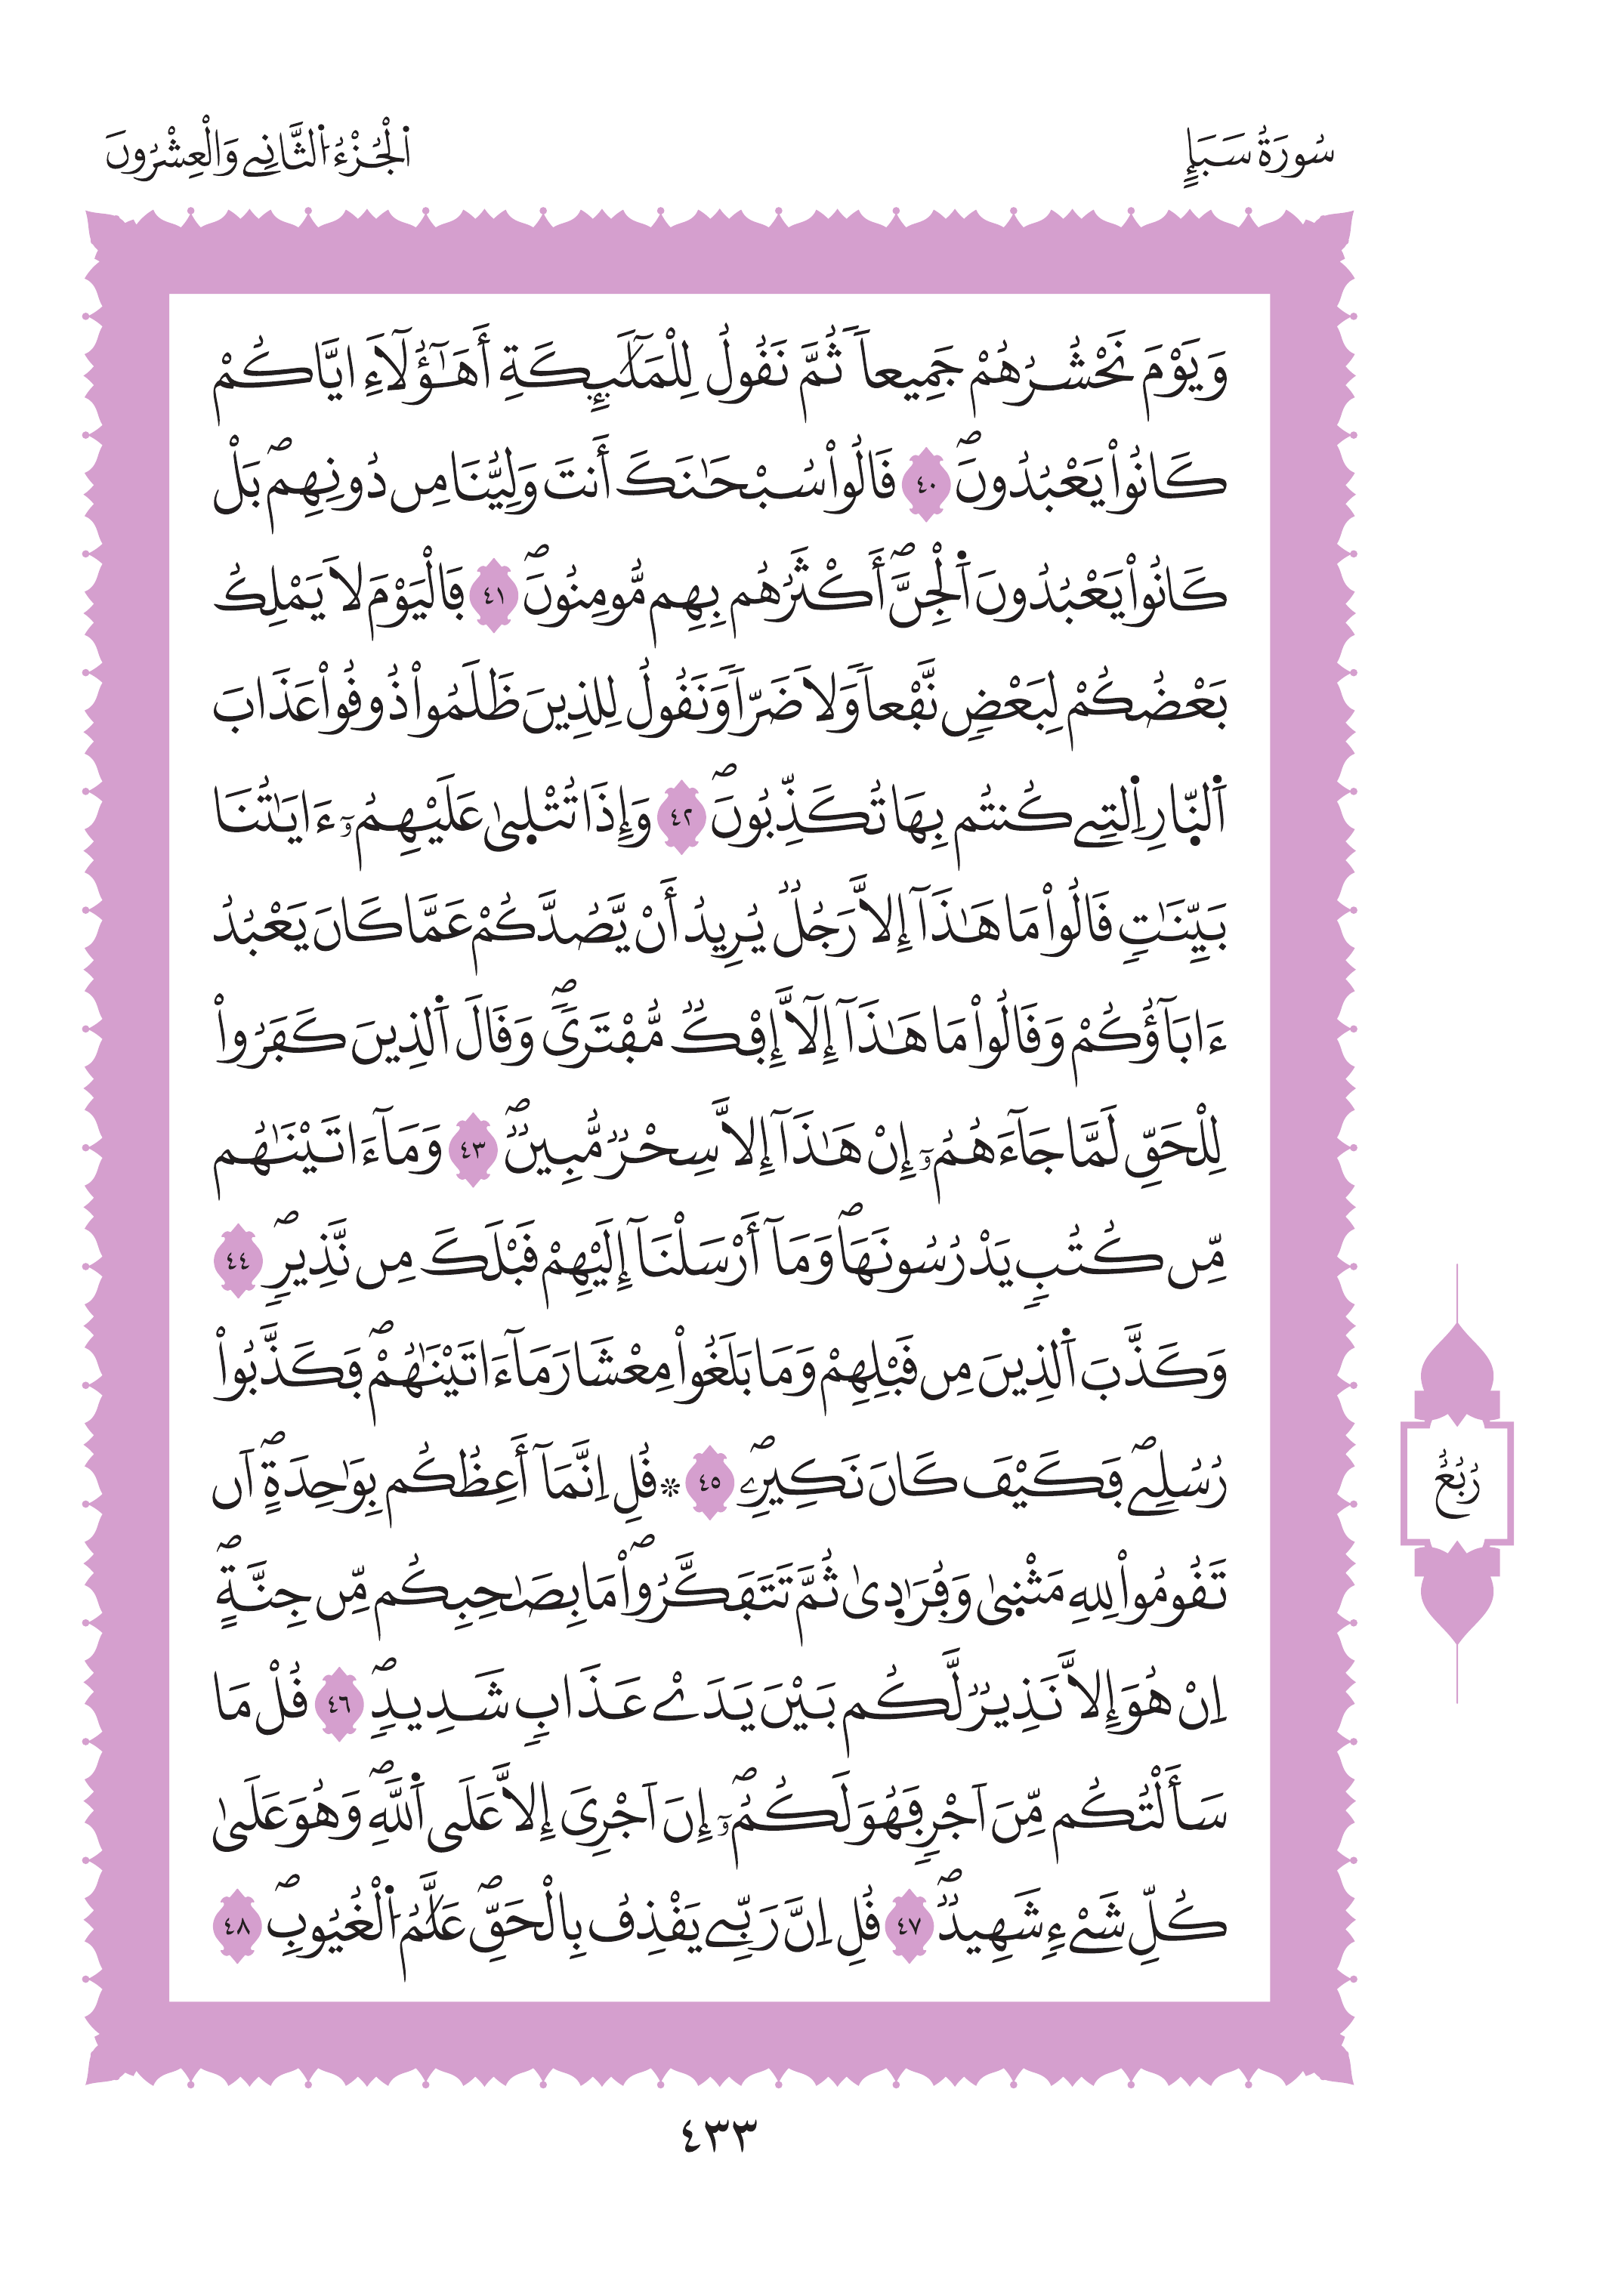 سُورَةُ سَبَإٍ
اَ۬لْجُزْءُ اُ۬لثَّانِے وَالْعِشْرُونَ
وَيَوْمَ نَحْشُرُهُمْ جَمِيعاٗ ثُمَّ نَقُولُ لِلْمَلَٰٓئِكَةِ أَهَٰٓؤُلَآءِ ايَّاكُمْ
كَانُواْ يَعْبُدُونَۖ ٤٠ قَالُواْ سُبْحَٰنَكَ أَنتَ وَلِيُّنَا مِن دُونِهِمۖ بَلْ
كَانُواْ يَعْبُدُونَ اَ۬لْجِنَّۖ أَكْثَرُهُم بِهِم مُّومِنُونَۖ ٤١ فَالْيَوْمَ لَا يَمْلِكُ
بَعْضُكُمْ لِبَعْضٖ نَّفْعاٗ وَلَا ضَرّاٗ وَنَقُولُ لِلذِينَ ظَلَمُواْ ذُوقُواْ عَذَابَ
اَ۬لنّ۪ارِ اِ۬لتِے كُنتُم بِهَا تُكَذِّبُونَۖ ٤٢ وَإِذَا تُتْل۪يٰ عَلَيْهِمُۥٓ ءَايَٰتُنَا
بَيِّنَٰتٖ قَالُواْ مَا هَٰذَآ إِلَّا رَجُلٞ يُرِيدُ أَنْ يَّصُدَّكُمْ عَمَّا كَانَ يَعْبُدُ
ءَابَآؤُكُمْ وَقَالُواْ مَا هَٰذَآ إِلَّآ إِفْكٞ مُّفْتَريٗۖ وَقَالَ اَ۬لذِينَ كَفَرُواْ
لِلْحَقِّ لَمَّا جَآءَهُمُۥٓ إِنْ هَٰذَآ إِلَّا سِحْرٞ مُّبِينٞۖ ٤٣ وَمَآ ءَاتَيْنَٰهُم
مِّن كُتُبٖ يَدْرُسُونَهَاۖ وَمَآ أَرْسَلْنَآ إِلَيْهِمْ قَبْلَكَ مِن نَّذِيرٖۖ ٤٤
وَكَذَّبَ اَ۬لذِينَ مِن قَبْلِهِمْ وَمَا بَلَغُواْ مِعْشَارَ مَآ ءَاتَيْنَٰهُمْۖ فَكَذَّبُواْ
رُسُلِےۖ فَكَيْفَ كَانَ نَكِيرِۦۖ ٤٥ ۞ قُلِ اِنَّمَآ أَعِظُكُم بِوَٰحِدَةٍۖ اَن
تَقُومُواْ لِلهِ مَثْن۪يٰ وَفُرَٰد۪يٰ ثُمَّ تَتَفَكَّرُواْۖ مَا بِصَٰحِبِكُم مِّن جِنَّةٍۖ
اِنْ هُوَ إِلَّا نَذِيرٞ لَّكُم بَيْنَ يَدَےْ عَذَابٖ شَدِيدٖۖ ٤٦ قُلْ مَا
سَأَلْتُكُم مِّنَ اَجْرٖ فَهُوَ لَكُمُۥٓۖ إِنَ اَجْرِيَ إِلَّا عَلَي اَ۬للَّهِۖ وَهُوَ عَلَيٰ
كُلِّ شَےْءٖ شَهِيدٞۖ ٤٧ قُلِ اِنَّ رَبِّے يَقْذِفُ بِالْحَقِّۖ عَلَّٰمُ اُ۬لْغُيُوبِۖ ٤٨
رُبُعُ
٤٣٣